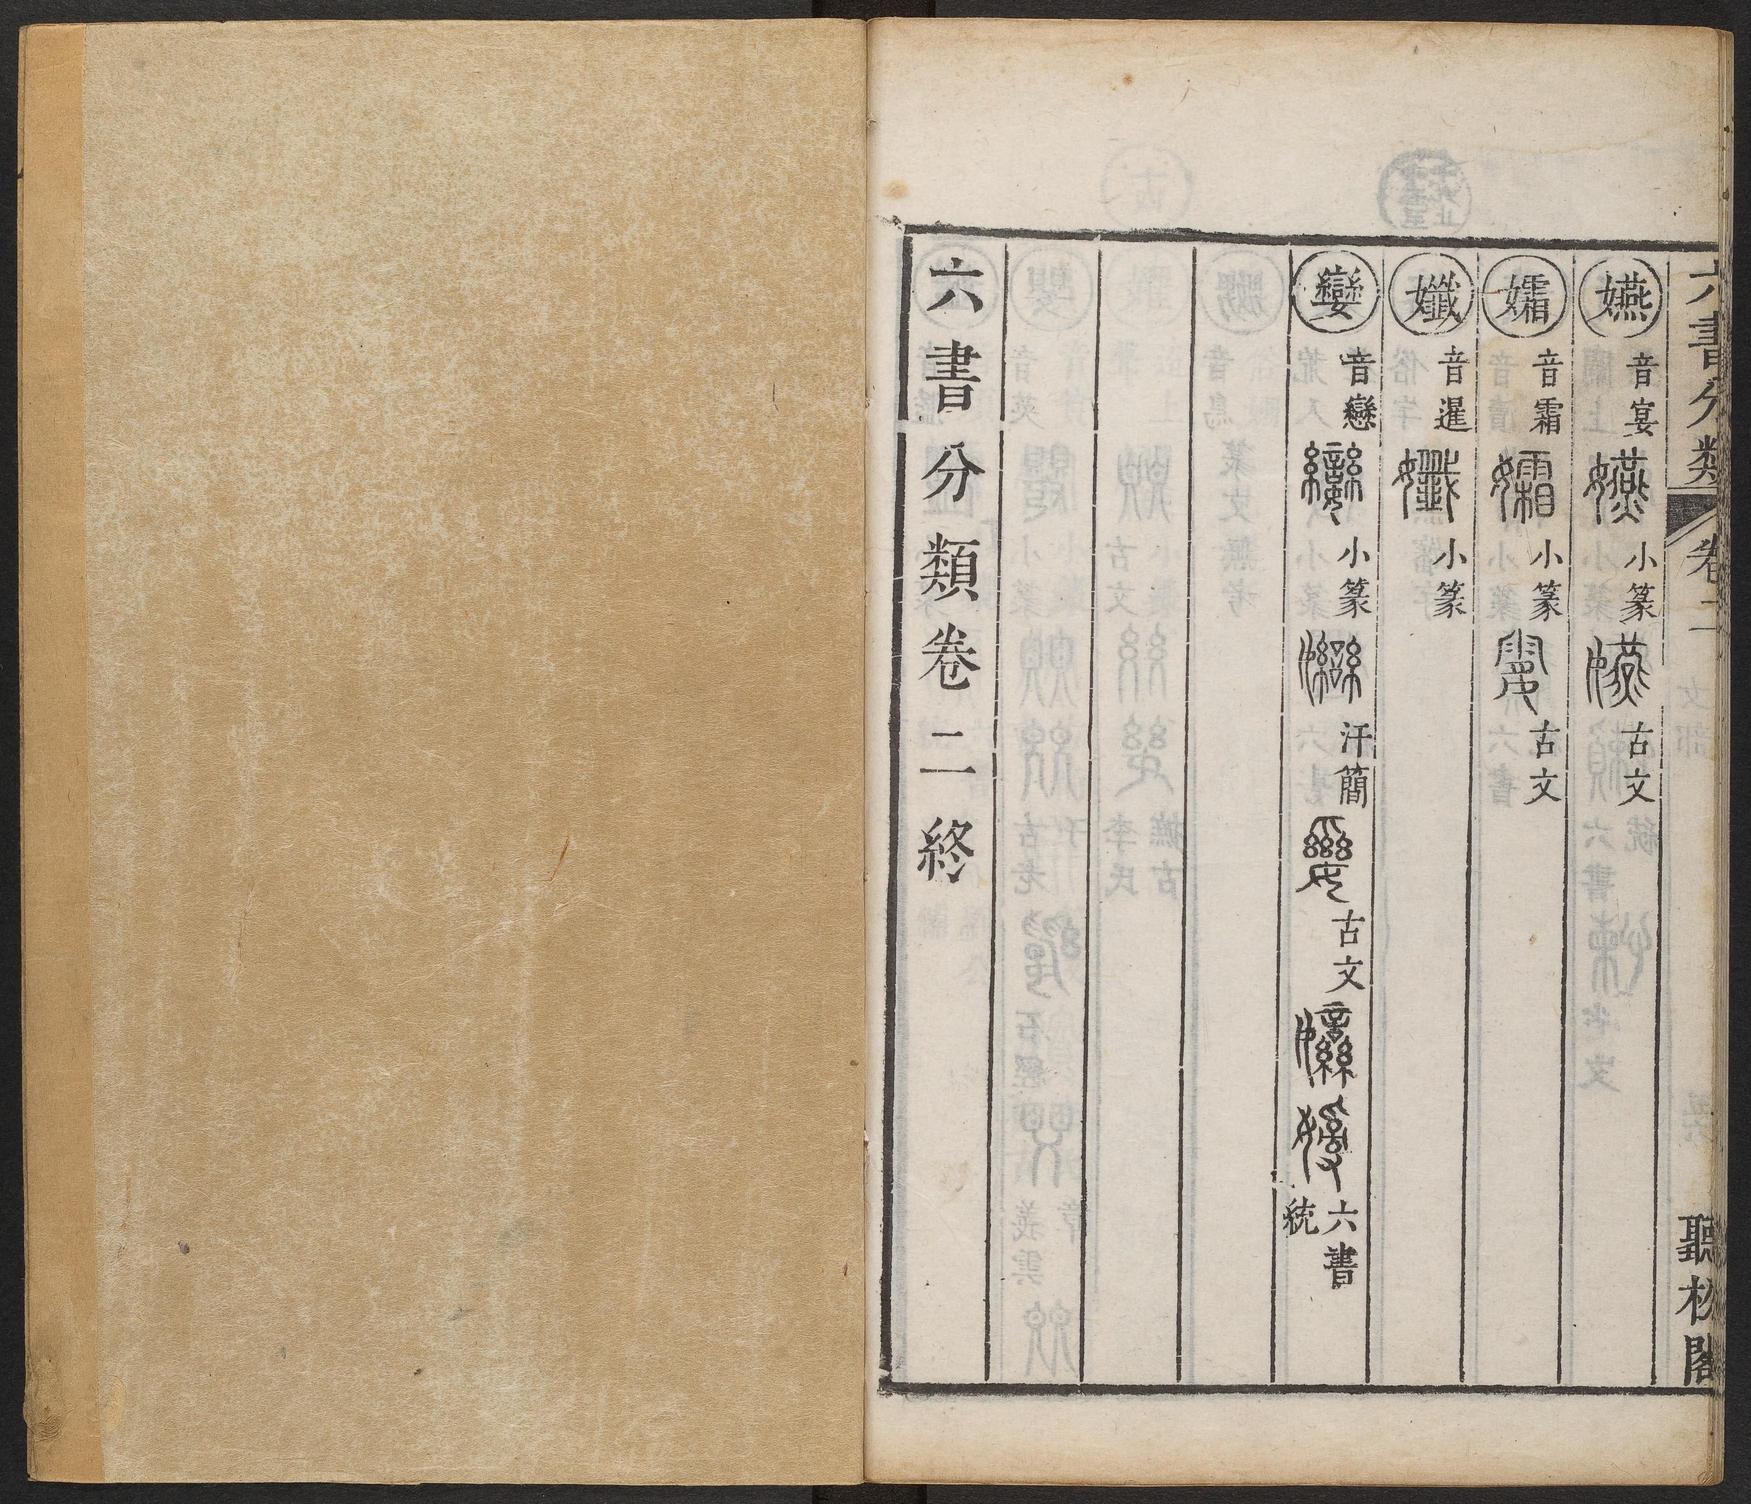 六書分類 卷二 聽松閣
嬿 音宴 嬿 小篆 嬿 古文
孀 音霜 孀 小篆 古文
孅 音暹 孅 小篆
孌 音戀 孌 小篆 孌 汗簡 古文 六書統
六書分類卷二終